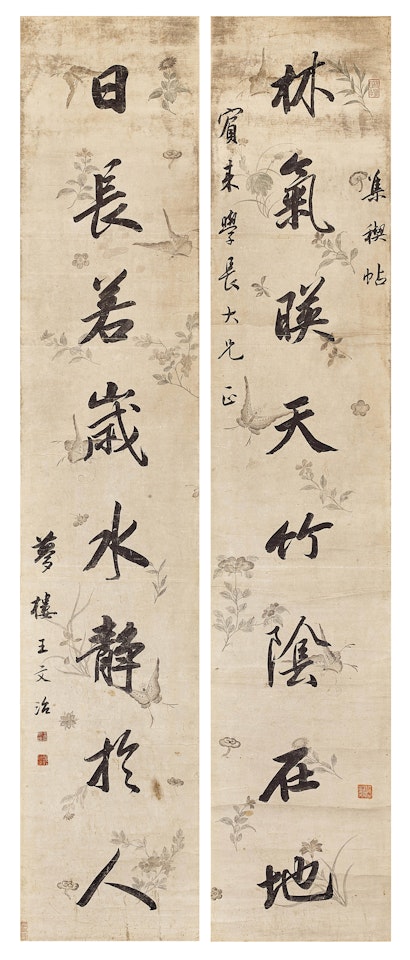 集禊帖
林氣暎天竹陰在地
賓來學長大兄正
日長若歲水靜於人
夢樓王文治